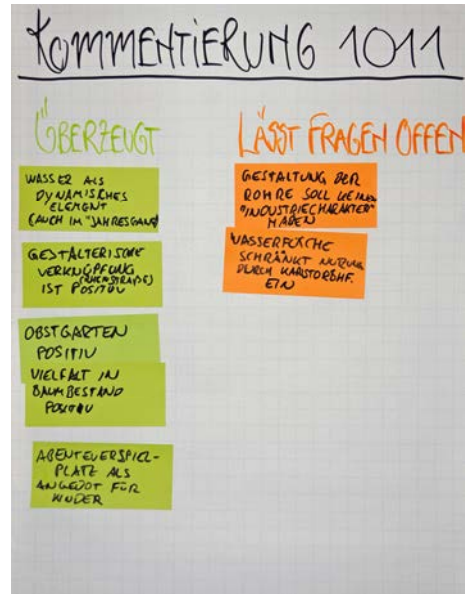 KOMMENTIERUNG 1011
ÜBERZEUGT
WASSER ALS
DYNAMISCHES
ELEMENT
(AUCH IM "JAHRESGANG")
GESTALTERISCHE
VERKNÜPFUNG
IST POSITIV
OBSTGARTEN
POSITIV
VIELFALT IN
BAUMBESTAND
POSITIV
ABENTEUERSPIEL-
PLATZ ALS
ANGEBOT FÜR
KINDER
LÄSST FRAGEN OFFEN
GESTALTUNG DER
ROHRE SOLL KEINEN
"INDUSTRIECHARAKTER"
HABEN
WASSERFLÄCHE
SCHRÄNKT NUTZUNG
DURCH KARLSTORBHF.
EIN